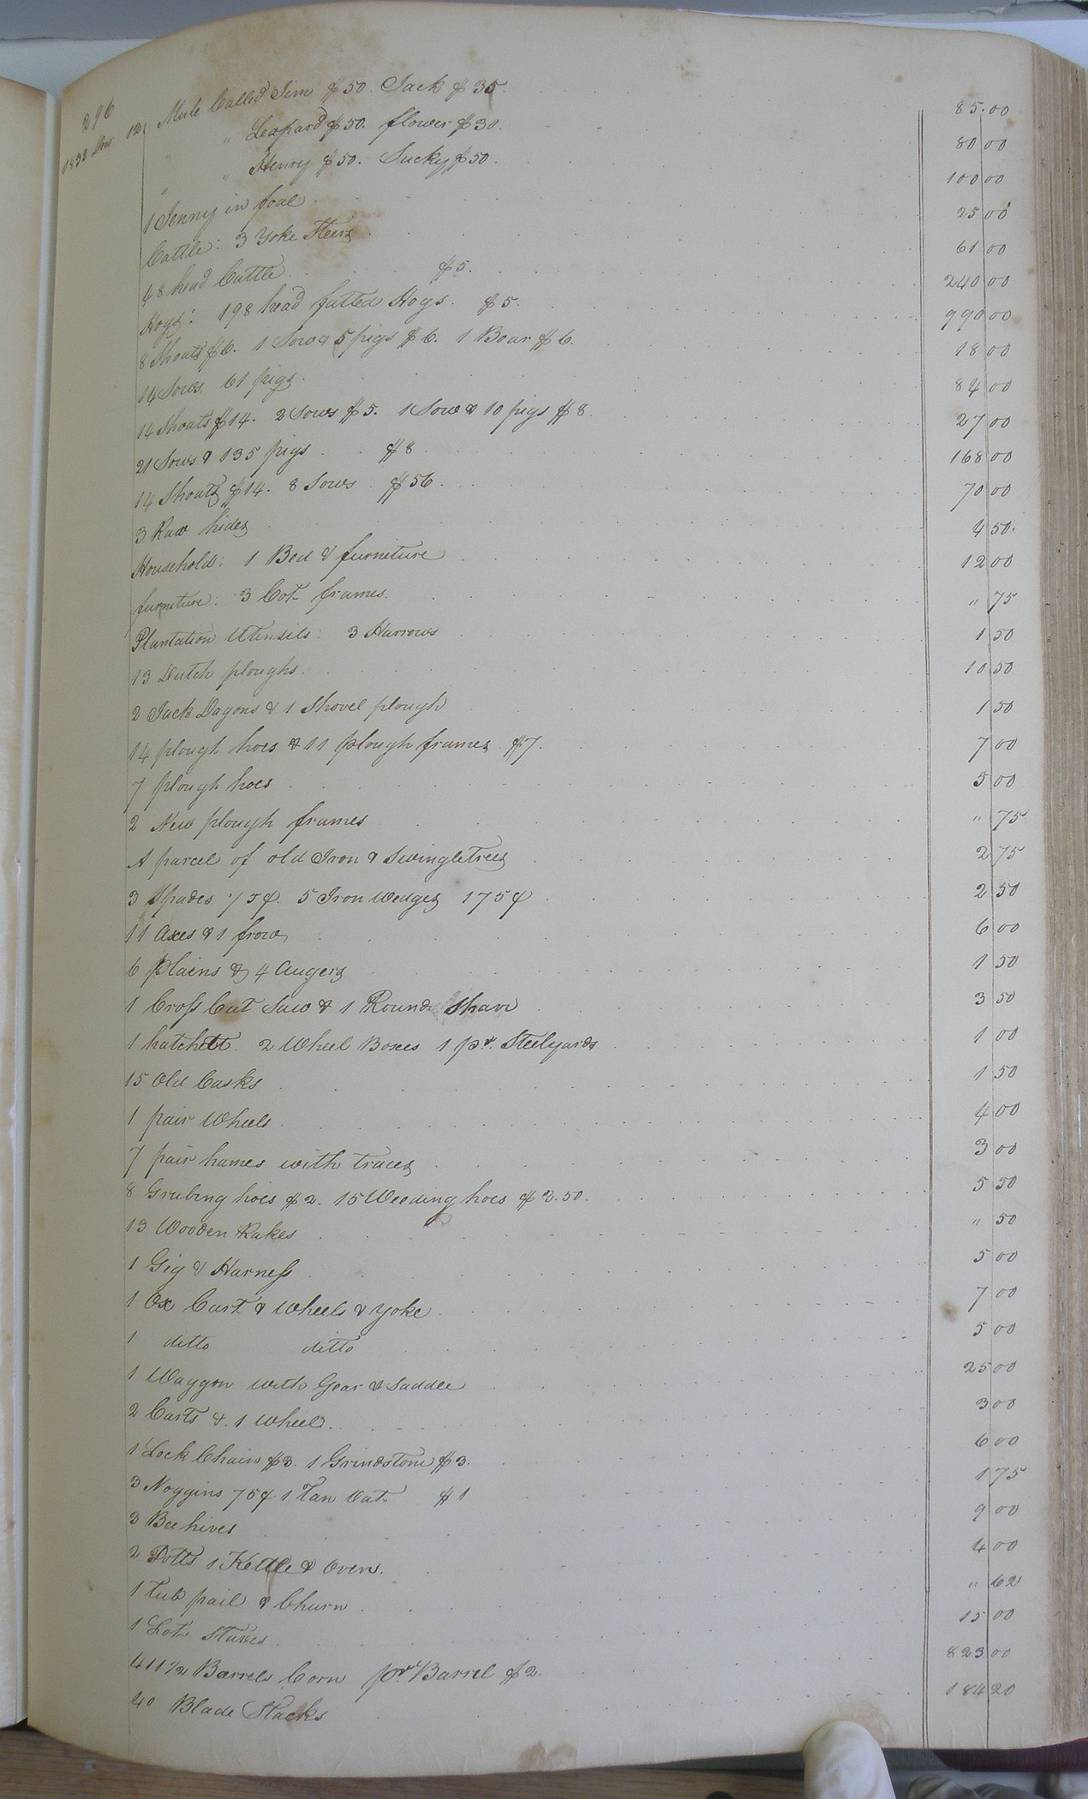 296
1838 Nov 12, Mule Called Jim $50. Jack $35 85.00
" " Leopard $50. flower $30. 80 00
" " Henry $50. Sucky $50. 100 00
1 Jenny in foal 25 00
Cattle: 3 Yoke Steers 61 00
48 head Cattle $5. 240 00
Hogs: 198 head fatted Hogs. $5. 990 00
8 Shoats $6. 1 Sow & 5 pigs $6. 1 Boar $6. 18 00
14 Sows, 61 pigs. 84 00
14 Shoats $14. 2 Sows $5. 1 Sow & 10 pigs $8. 27 00
21 Sows & 135 pigs $8 168 00
14 Shoats $14. 8 Sows $56. 70 00
3 Raw hides 4 50.
Household: 1 Bed & furneture 12 00
furneture: 3 Cot frames. " 75
Plantation Utensils: 3 Harrows 1 50
13 Dutch ploughs. 10 50
2 Jack Dagons & 1 Shovel plough 1 50
14 plough hoes & 11 plough frames $7. 7 00
7 plough hoes 5 00
2 New plough frames " 75
A parcel of old Iron & Swingletrees 2 75
3 Spades 75¢. 5 Iron Wedges 175¢ 2 50
11 Axes & 1 frow 6 00
6 Plains & 4 Augers 1 50
1 Cross Cut Saw & 1 Round Shave 3 50
1 hatchett 2 Wheel Boxes 1 pr. Steelyards 1 00
15 Old Casks 1 50
1 pair Wheels 4 00
7 pair hames with traces 3 00
8 Grubing hoes $2. 15 Weeding hoes $3.50. 5 50
13 Wooden Rakes " 50
1 Gig & Harness 5 00
1 Ox Cart & Wheels & yoke 7 00
1 ditto ditto 5 00
1 Waggon with Gear & Saddle 25 00
2 Carts & 1 Wheel. 3 00
1 Lock Chain $3. 1 Grindstone $3. 6 00
3 Noggins 75¢ 1 Tan Vat $1 1 75
3 Bee hives 9 00
2 Potts 1 Kettle & Oven. 4 00
1 Tub pail & Churn " 62
1 Lot Staves 15 00
411 1/2 Barrels Corn pr. Barrel $2. 823 00
40 Blade Stacks 184 20